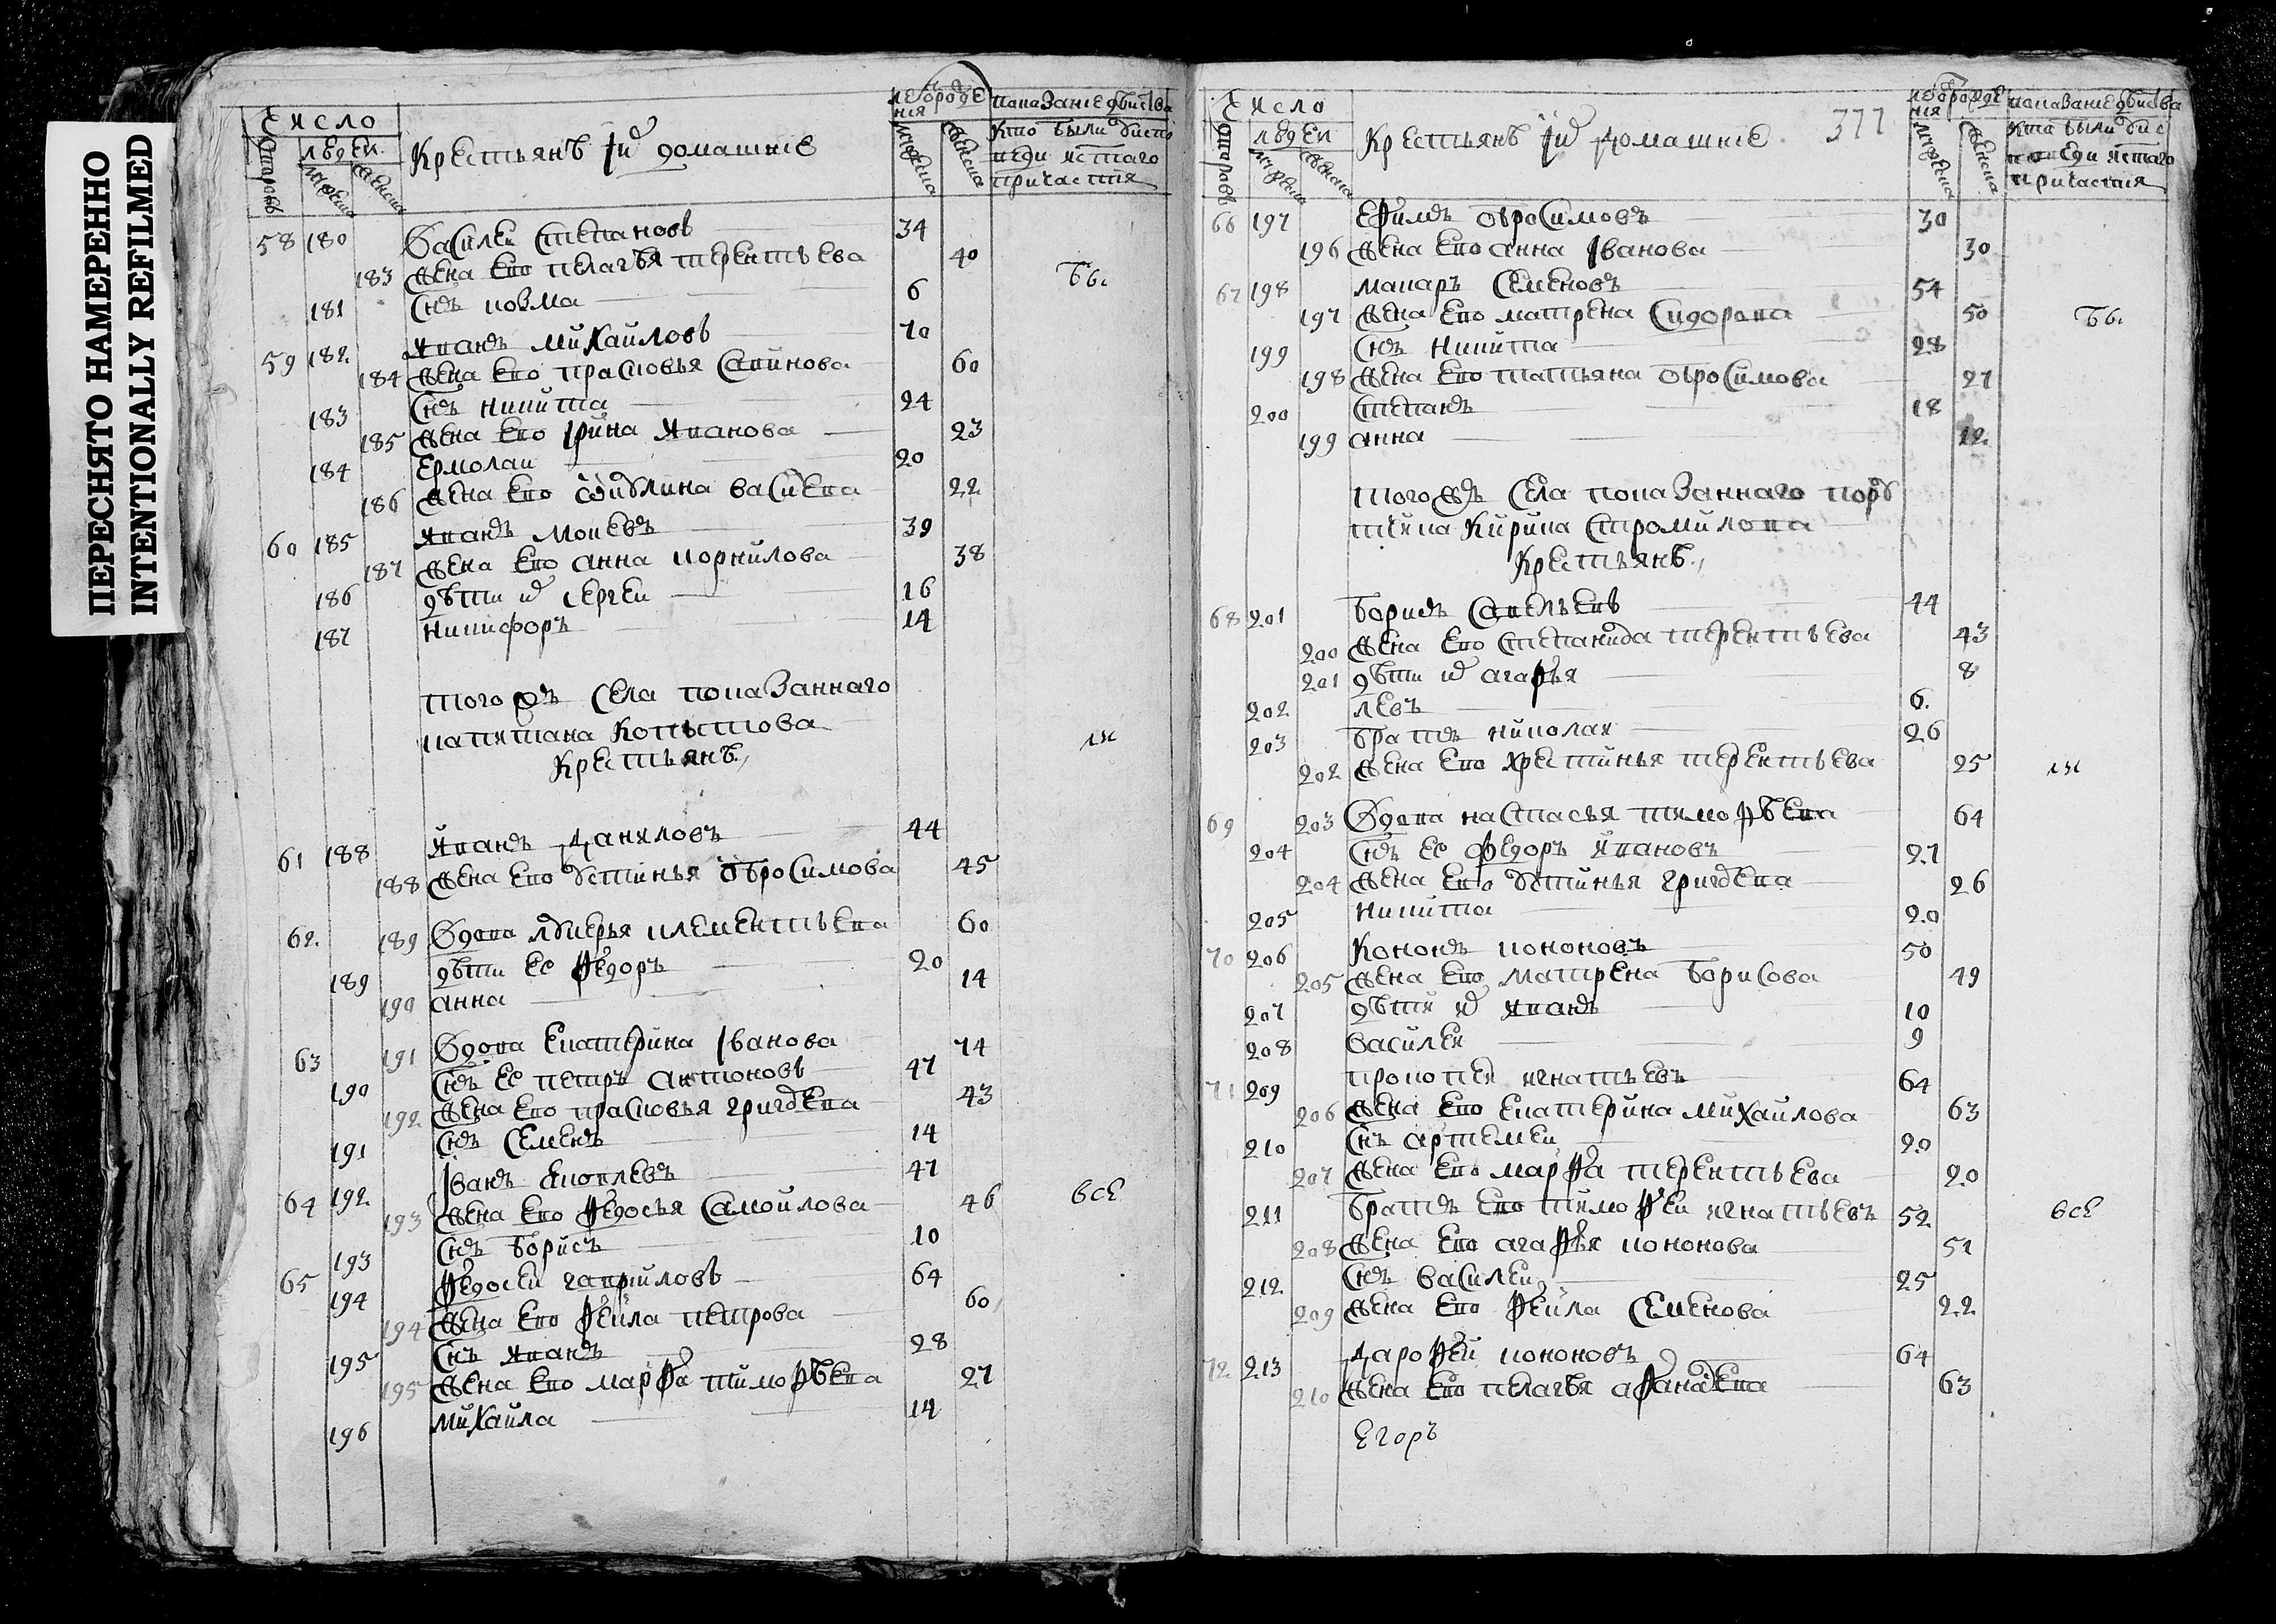 ПЕРЕСНЯТО НАМЕРЕННО
INTENTIONALLY REFILMED
Число
людеи
Крестьянѣ їи домашние
лѣ рожде
ния
показание дѣиства
кто были у испо
веди и стаго
причастия
58 180 Василеи Степановъ 34
183 жена ево пелагѣя терентьева 40
181 Снъ козма 6
Бы
59 182 Иванъ миХаиловъ 70
184 жена ево прасковья Савинова 60
183 Снъ никита 24
185 жена ево Ірина Иванова 23
184 Ермолаи 20
186 жена ево акилина васиева 22
60 185 Иванъ мокѣевъ 39
187 жена ево анна корнилова 38
186 дѣти их сергеи 16
187 никифоръ 14
того жъ Села показаннаго
капитана Копытова
Крестьянѣ
ли
61 188 Иванъ Даниловъ 44
188 жена ево устинья обросимова 45
62 189 Вдова лукерья клементьева 60
189 дѣти ее Федоръ 20
190 анна 14
63 191 Вдова Екатерина Іванова 74
190 Снъ ее петръ антоновъ 47
192 жена ево прасковья григорева 43
191 Снъ Семенъ 14
64 192 Іванъ яковлевъ 47
193 жена ево Федосья Самоилова 46
все
193 Снъ борисъ 10
65 194 Федосеи гавриловъ 64
194 жена ево Фекла петрова 60
195 Снъ Иванъ 28
195 жена ево марФа тимоФѣева 27
196 миХаила 14
Число
людеи
Крестьянѣ їи домашние
377
лѣ рожде
ния
показание дѣиства
кто были у ис
поведи и стаго
причастия
66 197 Ефимъ обросимовъ 30
196 жена ево анна Іванова 30
67 198 макаръ Семеновъ 54
197 жена ево матрена Сидорова 50
Бы
199 Снъ никита 28
198 жена ево татьяна обросимова 27
200 Степанъ 18
199 анна 12
того жъ Села показаннаго пору
тчика Кирила Стромилова
Крестьянѣ
68 201 борисъ Савельевъ 44
200 жена ево степанида терентьева 43
201 дѣти их агаФья 8
202 левъ 6
203 братъ николаи 26
202 жена ево Хрестинья терентьева 25
ли
69 203 Вдова настасья тимоФѣева 64
204 Снъ ее Федоръ Ивановъ 27
204 жена ево устинья григорева 26
205 никита 20
70 206 Кононъ кононовъ 50
205 жена ево матрена борисова 49
207 дѣти их Иванъ 10
208 василеи 9
71 209 прокопеи игнатьевъ 64
206 жена ево Екатерина миХаилова 63
210 Снъ артемеи 20
207 жена ево марФа терентьева 20
211 братъ ево тимоФеи игнатьевъ 52
все
208 жена ево агаФья кононова 51
212 Снъ василеи 25
209 жена ево Фекла Семенова 22
72 213 дароФеи кононовъ 64
210 жена ево пелагѣя аФанасева 63
Егоръ